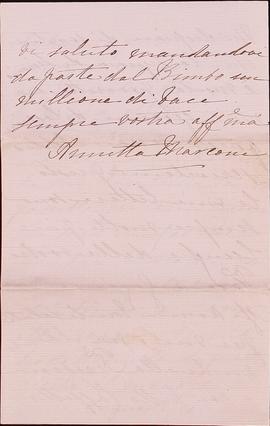 vi saluto mandandovi
da parte del Bimbo un
millione di baci
sempre vostra aff.ma
Annetta Marconi